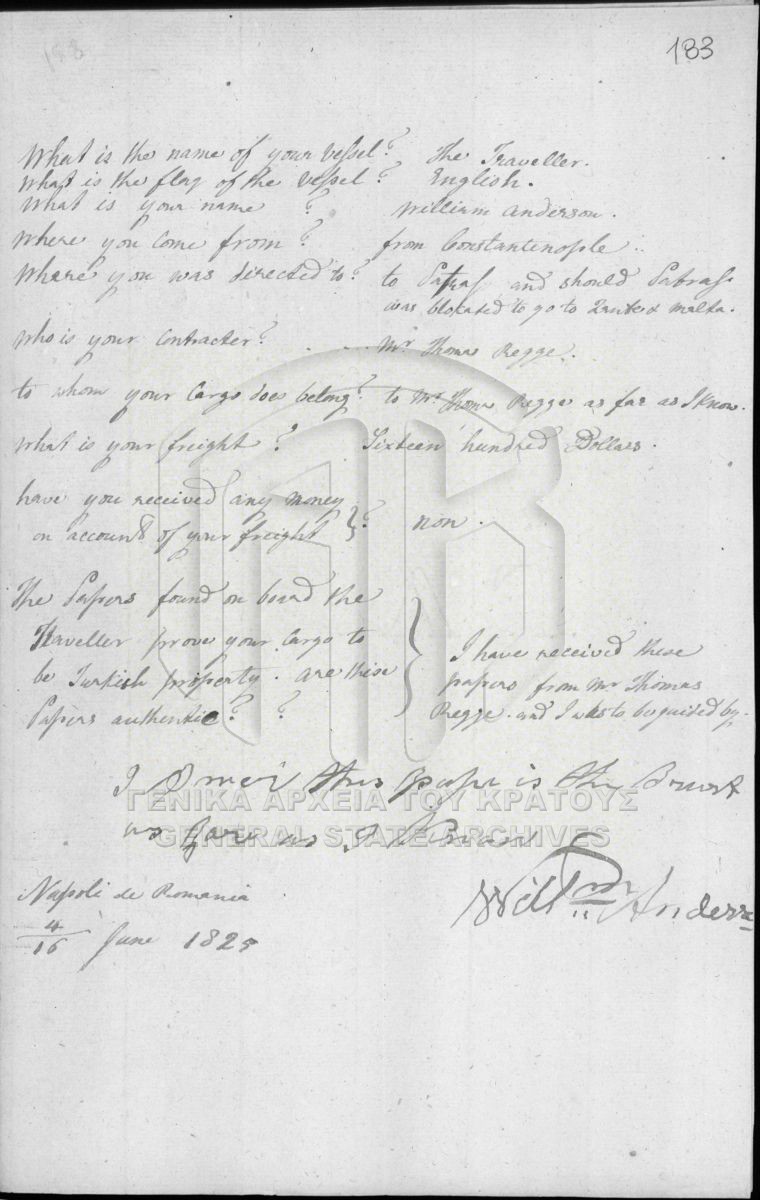 183
What is the name of your vessel? the Traveller.
What is the flag of the vessel? English.
What is your name? William Anderson.
Where you come from? from Constantenople..
Where you was directed to? to Patras and should Patras
was blokated to go to Zante & Malta.
Who is your contracter? . . . Mr Thomas Regge.
to whom your Cargo does belong? to Mr Thoms Regge as far as I know.
What is your freight? Sixteen hundred Dollars.
have you received any money
on account of your freight }? non.
The Papers found on board the
Traveller prove your Cargo to
be Turkish property. are these
Papers authentic? ?
I have received these
papers from Mr Thomas
Regge. and I was to be guided by.
I this is the
as fare as I
ΓΕΝΙΚΑ ΑΡΧΕΙΑ ΤΟΥ ΚΡΑΤΟΥΣ
GENERAL STATE ARCHIVES
Willm Anderson
Napoli de Romania
4/16 June 1825